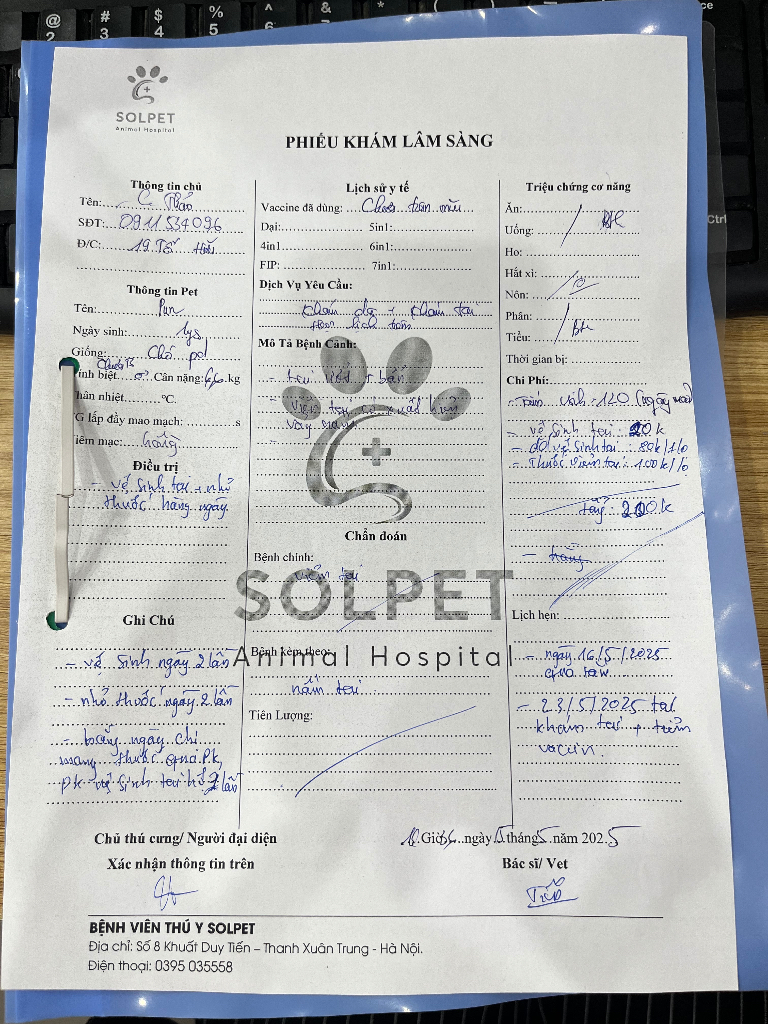 SOLPET
Animal Hospital
PHIẾU KHÁM LÂM SÀNG
Thông tin chủ
Tên: C Thảo
SĐT: 0911534096
Đ/C: 19 Tố Hữu
Thông tin Pet
Tên: Pun
Ngày sinh: 1ys
Giống: Chó pol
Chưa TS
inh biệt ♂ Cân nặng: 6,6 kg
hân nhiệt ℃.
G lấp đầy mao mạch: s
iêm mạc: hồng
Điều trị
- vệ sinh tai, nhỏ
thuốc hàng ngày
Ghi Chú
- vệ sinh ngày 2 lần
- nhỏ thuốc ngày 2 lần
- hàng ngày chị
mang thuốc qua P.k,
pk vệ sinh tai hộ 2 lần
Lịch sử y tế
Vaccine đã dùng: Chưa tiêm mũi
Dại: 5in1:
4in1 6in1:
FIP: 7in1:
Dịch Vụ Yêu Cầu:
khám da + khám tai
lịch tiêm
Mô Tả Bệnh Cảnh:
- tai viêm + bẩn
- viền tai có xuất hiện
vảy
Chẩn đoán
Bệnh chính:
viêm tai
Bệnh kèm theo:
nấm tai
Tiên Lượng:
Triệu chứng cơ năng
Ăn:
Uống: Bt
Ho:
Hắt xì:
Nôn: 0
Phân:
Tiểu: Bt
Thời gian bị:
Chi Phí:
- 120 (ngày
- vệ sinh tai 20k
- đồ vệ sinh tai: 80k/1lo
- Thuốc viêm tai: 100k/lo
tổng: 200k
Lịch hẹn:
- ngày 16/5/2025
qua
- 23/5/2025 tái
khám tai + tiêm
vacxin.
SOLPET
Animal Hospital
Chủ thú cưng/ Người đại diện
Xác nhận thông tin trên
Giờ ngày 15 tháng 5 năm 2025
Bác sĩ/ Vet
BỆNH VIÊN THÚ Y SOLPET
Địa chỉ: Số 8 Khuất Duy Tiến – Thanh Xuân Trung - Hà Nội.
Điện thoại: 0395 035558